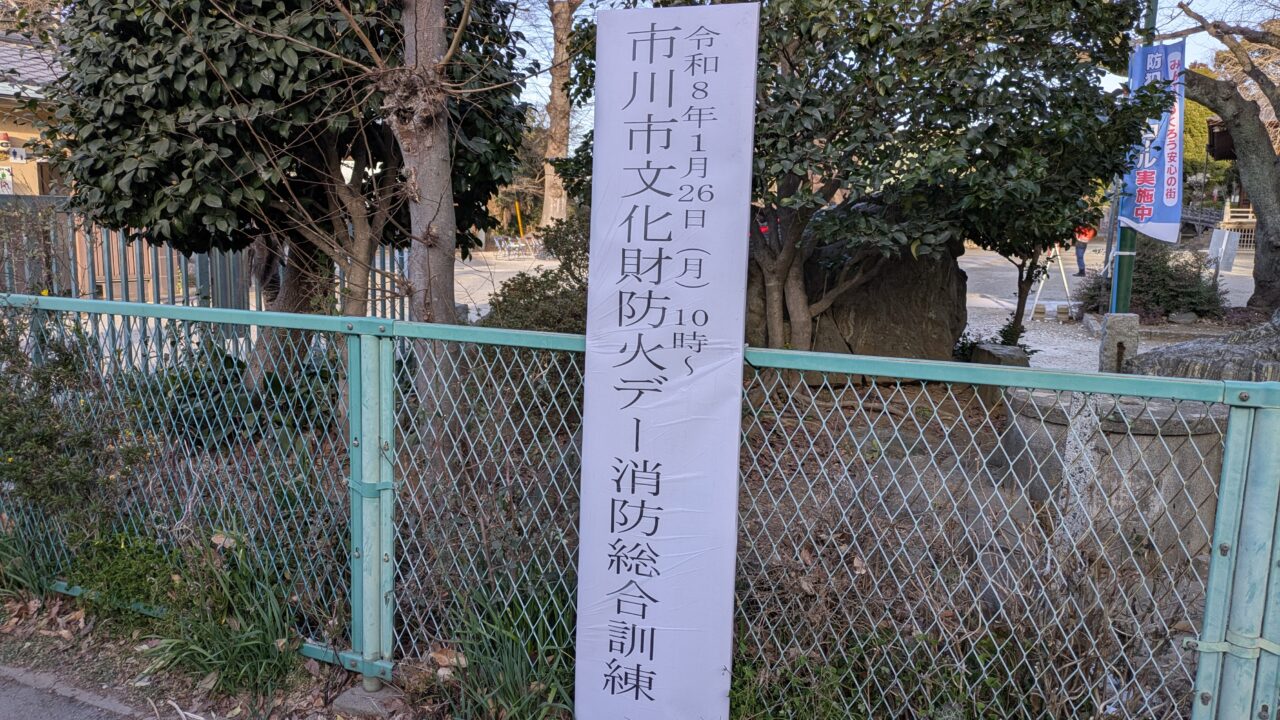 令和8年1月26日（月）10時～
市川市文化財防火デー消防総合訓練
防犯
ール実施中
み
くろう安心の街